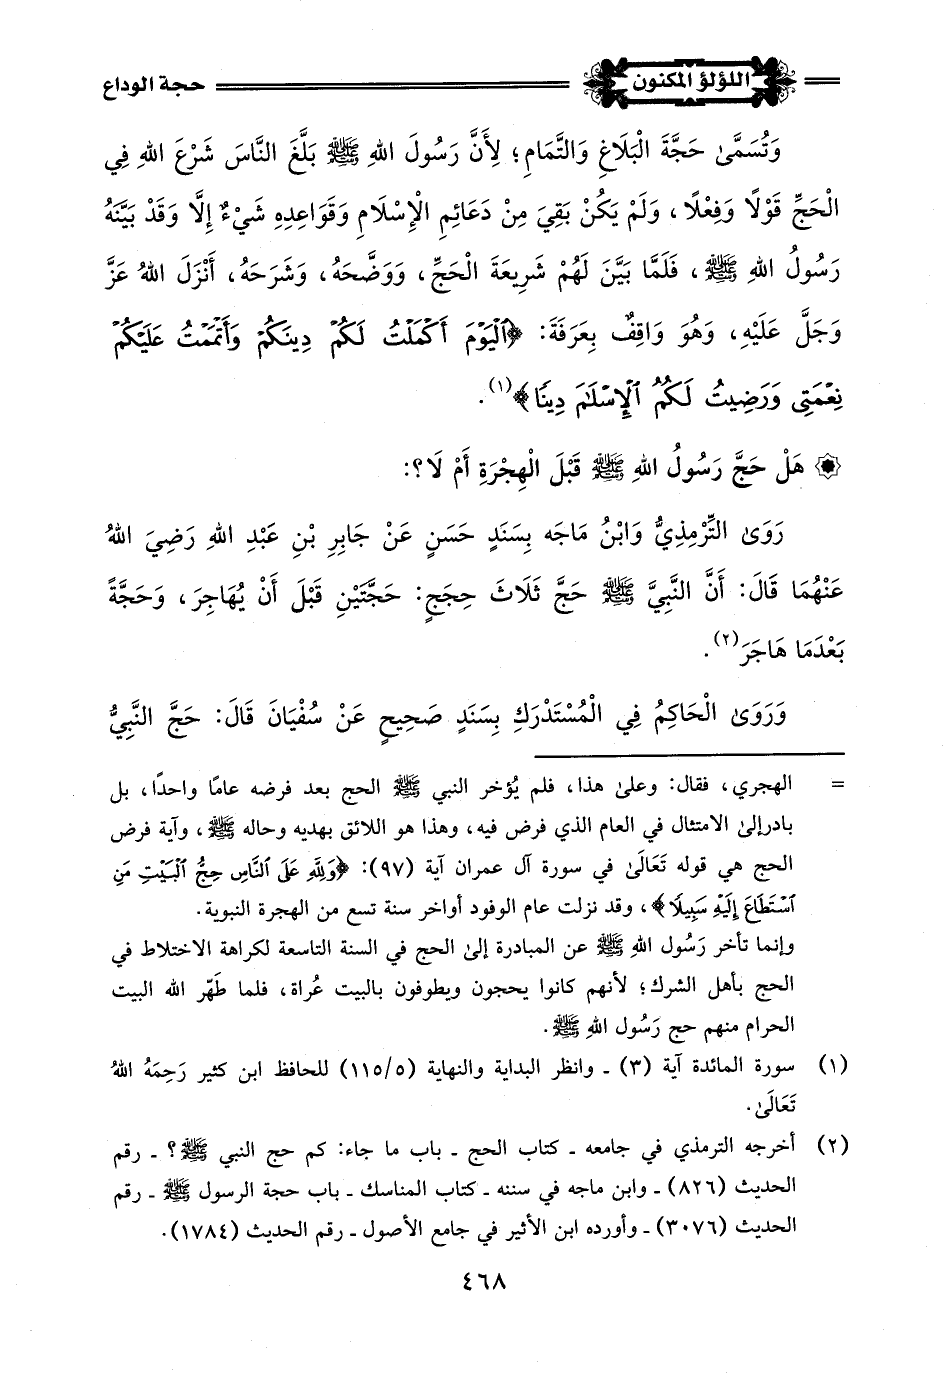 اللؤلؤ المكنون
حجة الوداع
وَتُسَمَّىٰ حَجَّةَ الْبَلَاغِ وَالتَّمَامِ؛ لِأَنَّ رَسُولَ اللهِ ﷺ بَلَّغَ النَّاسَ شَرْعَ اللهِ فِي
الْحَجِّ قَوْلًا وَفِعْلًا، وَلَمْ يَكُنْ بَقِيَ مِنْ دَعَائِمِ الْإِسْلَامِ وَقَوَاعِدِهِ شَيْءٌ إِلَّا وَقَدْ بَيَّنَهُ
رَسُولُ اللهِ ﷺ، فَلَمَّا بَيَّنَ لَهُمْ شَرِيعَةَ الْحَجِّ، وَوَضَّحَهُ، وَشَرَحَهُ، أَنْزَلَ اللهُ عَزَّ
وَجَلَّ عَلَيْهِ، وَهُوَ وَاقِفٌ بِعَرَفَةَ: ﴿ٱلْيَوْمَ أَكْمَلْتُ لَكُمْ دِينَكُمْ وَأَتْمَمْتُ عَلَيْكُمْ
نِعْمَتِى وَرَضِيتُ لَكُمُ ٱلْإِسْلَٰمَ دِينًا﴾(١).
۞ هَلْ حَجَّ رَسُولُ اللهِ ﷺ قَبْلَ الْهِجْرَةِ أَمْ لَا؟:
رَوَىٰ التِّرْمِذِيُّ وَابْنُ مَاجَه بِسَنَدٍ حَسَنٍ عَنْ جَابِرِ بْنِ عَبْدِ اللهِ رَضِيَ اللهُ
عَنْهُمَا قَالَ: أَنَّ النَّبِيَّ ﷺ حَجَّ ثَلَاثَ حِجَجٍ: حَجَّتَيْنِ قَبْلَ أَنْ يُهَاجِرَ، وَحَجَّةً
بَعْدَمَا هَاجَرَ(٢).
وَرَوَىٰ الْحَاكِمُ فِي الْمُسْتَدْرَكِ بِسَنَدٍ صَحِيحٍ عَنْ سُفْيَانَ قَالَ: حَجَّ النَّبِيُّ
= الهجري، فقال: وعلىٰ هذا، فلم يُؤخر النبي ﷺ الحج بعد فرضه عامًا واحدًا، بل
بادر إلىٰ الامتثال في العام الذي فرض فيه، وهذا هو اللائق بهديه وحاله ﷺ، وآية فرض
الحج هي قوله تَعَالَىٰ في سورة آل عمران آية (٩٧): ﴿وَلِلَّهِ عَلَى ٱلنَّاسِ حِجُّ ٱلْبَيْتِ مَنِ
ٱسْتَطَاعَ إِلَيْهِ سَبِيلًا﴾، وقد نزلت عام الوفود أواخر سنة تسع من الهجرة النبوية.
وإنما تأخر رَسُول اللهِ ﷺ عن المبادرة إلىٰ الحج في السنة التاسعة لكراهة الاختلاط في
الحج بأهل الشرك؛ لأنهم كانوا يحجون ويطوفون بالبيت عُراة، فلما طَهّر الله البيت
الحرام منهم حج رَسُول اللهِ ﷺ.
(١) سورة المائدة آية (٣) ـ وانظر البداية والنهاية (١١٥/٥) للحافظ ابن كثير رَحِمَهُ اللهُ
تَعَالَىٰ.
(٢) أخرجه الترمذي في جامعه ـ كتاب الحج ـ باب ما جاء: كم حج النبي ﷺ؟ ـ رقم
الحديث (٨٢٦) ـ وابن ماجه في سننه ـ كتاب المناسك ـ باب حجة الرسول ﷺ ـ رقم
الحديث (٣٠٧٦) ـ وأورده ابن الأثير في جامع الأصول ـ رقم الحديث (١٧٨٤).
٤٦٨